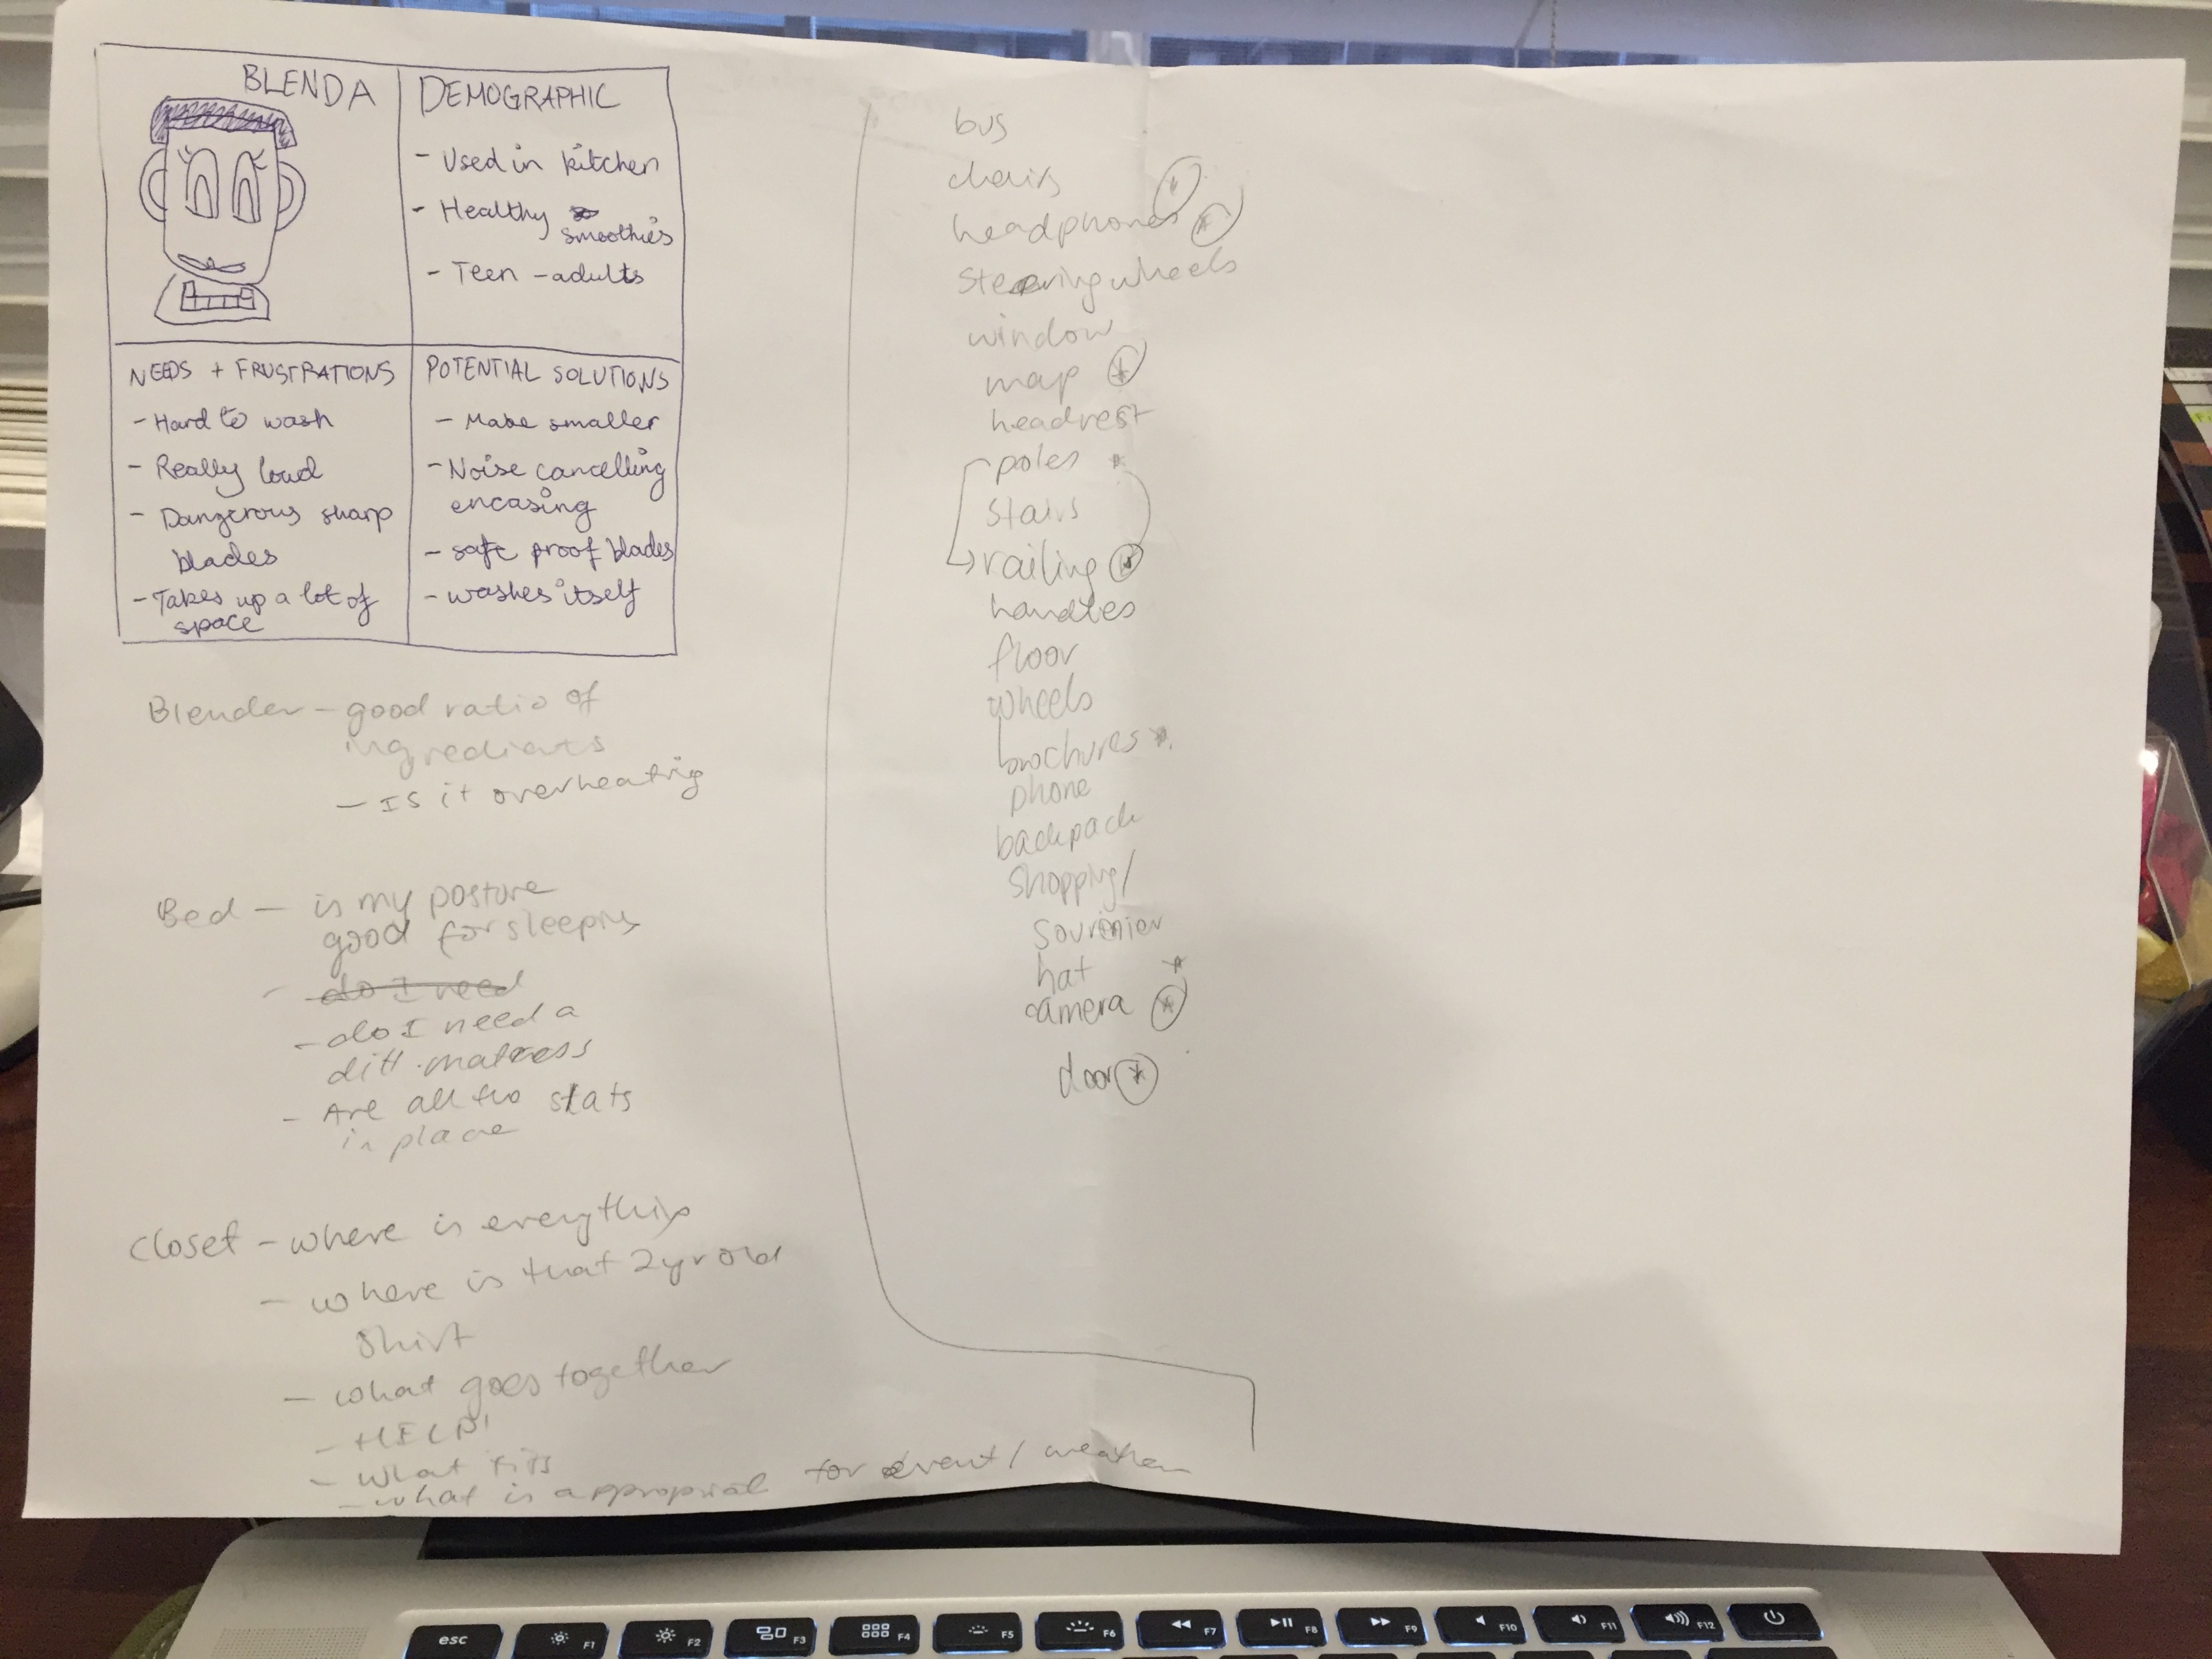 BLENDA
DEMOGRAPHIC
- Used in kitchen
- Healthy
smoothies
- Teen - adults
NEEDS + FRUSTRATIONS
- Hard to wash
- Really loud
- Dangerous sharp
blades
- Takes up a lot of
space
POTENTIAL SOLUTIONS
- Make smaller
- Noise cancelling
encasing
- safe proof blades
- washes itself
Blender - good ratio of
ingredients
- Is it overheating
Bed - is my posture
good for sleeping
- do I need
- do I need a
diff. matress
- Are all the slats
in place
Closet - where is everything
- where is that 2yr old
shirt
- what goes together
- HELP!
- what fits
- what is approprial for event / weather
bus
chairs *
headphones *
steering wheels
window
map *
headrest
poles *
stairs
railing *
handles
floor
wheels
brochures *
phone
backpack
shopping/
hat *
camera *
door *
esc
F1
F2
F3
F4
F5
F6
F7
F8
F9
F10
F11
F12